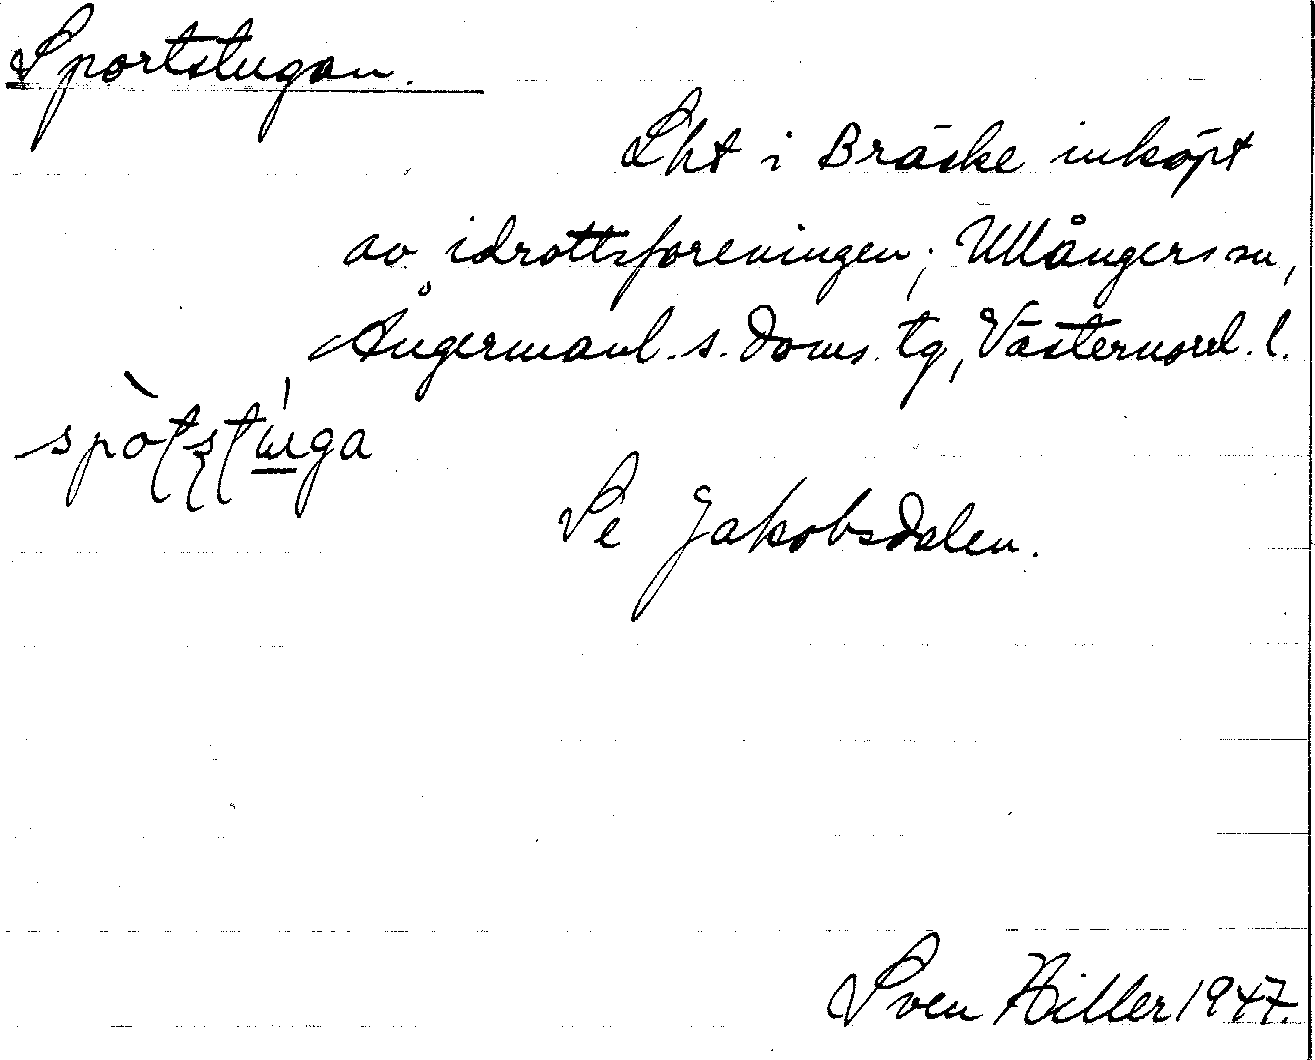 Sportstugan.
Lht i Bräcke inköpt
av idrottsföreningen; Ullångers sn,
Ångermanl. s. doms. tg, Västernorrl. l.
Se Jakobsdalen.
Sven Hiller 1947.